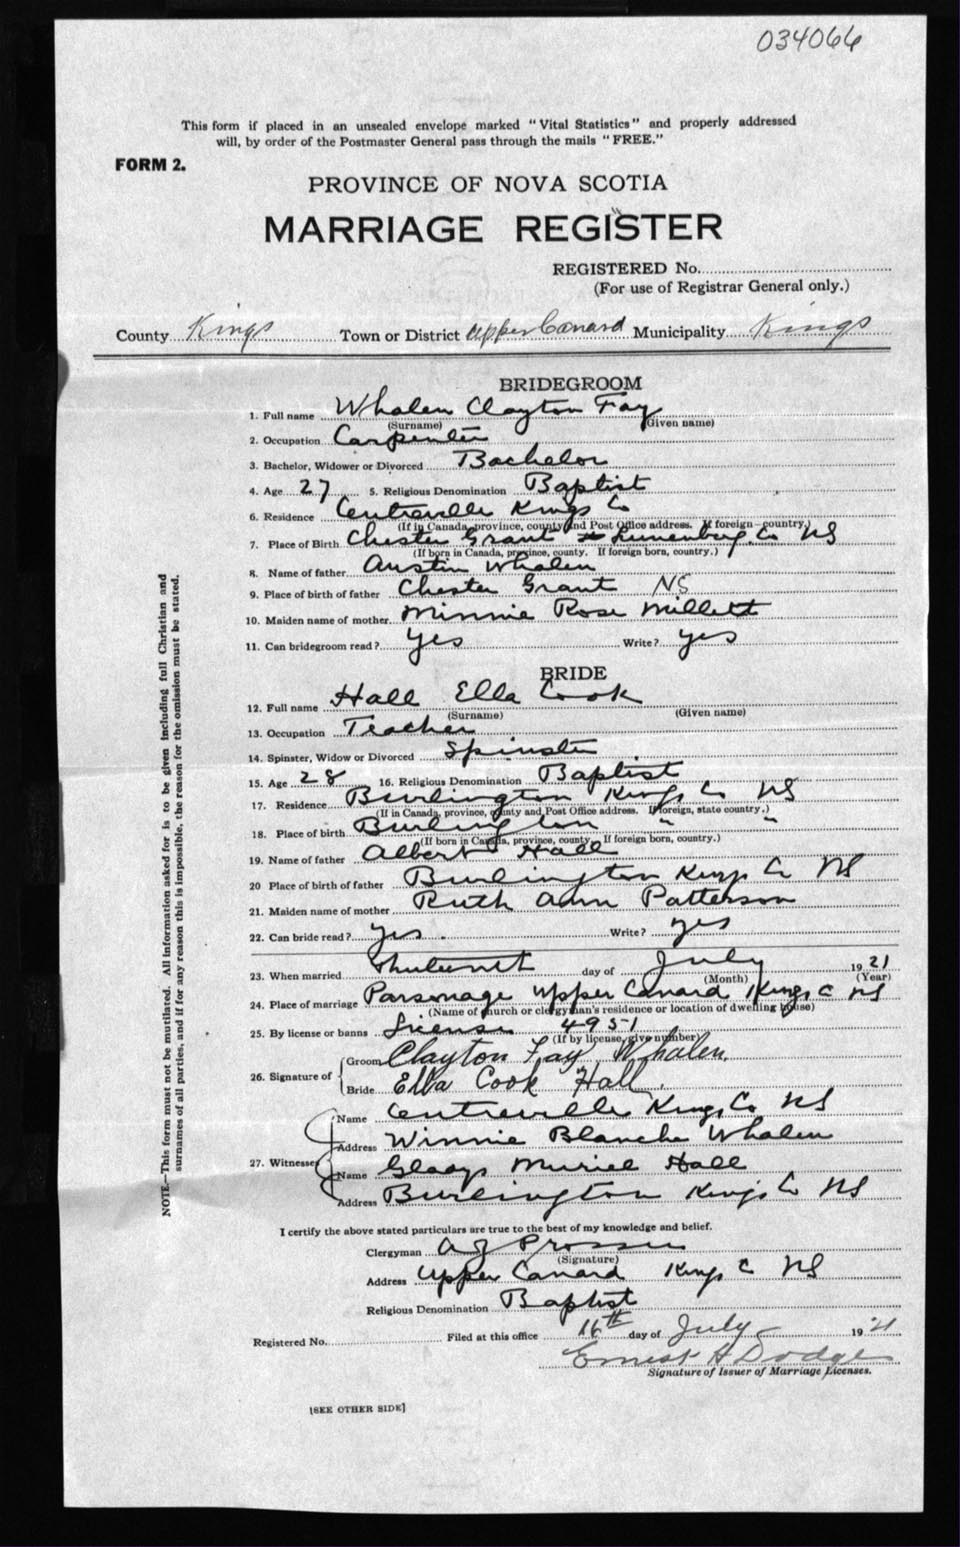 034066
This form if placed in an unsealed envelope marked "Vital Statistics" and properly addressed
will, by order of the Postmaster General pass through the mails "FREE."
FORM 2.
PROVINCE OF NOVA SCOTIA
MARRIAGE REGISTER
REGISTERED No.
(For use of Registrar General only.)
County Kings Town or District Upper Canard Municipality Kings
BRIDEGROOM
1. Full name Whalen Clayton Fay
(Surname) (Given name)
2. Occupation Carpenter
3. Bachelor, Widower or Divorced Bachelor
4. Age 27 5. Religious Denomination Baptist
6. Residence Centreville Kings Co
(If in Canada, province, county and Post Office address. If foreign—country.)
7. Place of Birth Chester Grant Lunenburg Co NS
(If born in Canada, province, county. If foreign born, country.)
8. Name of father Austin Whalen
9. Place of birth of father Chester Grant NS
10. Maiden name of mother Minnie Rose Millett
11. Can bridegroom read? yes Write? yes
BRIDE
12. Full name Hall Ella Cook
(Surname) (Given name)
13. Occupation Teacher
14. Spinster, Widow or Divorced Spinster
15. Age 28 16. Religious Denomination Baptist
17. Residence Burlington Kings Co NS
(If in Canada, province, county and Post Office address. If foreign, state country.)
18. Place of birth Burlington " "
(If born in Canada, province, county. If foreign born, country.)
19. Name of father Albert Hall
20 Place of birth of father Burlington Kings Co NS
21. Maiden name of mother Ruth Ann Patterson
22. Can bride read? yes. Write? yes
23. When married day of July 1921
(Month) (Year)
24. Place of marriage Parsonage Upper Canard Kings C NS
(Name of church or clergyman's residence or location of dwelling house)
25. By license or banns License 4951
(If by license, give number)
26. Signature of Groom Clayton Fay Whalen.
Bride Ella Cook Hall.
27. Witnesses Name Centreville Kings Co NS
Address Winnie Blanche Whalen
Name Gladys Muriel Hall
Address Burlington Kings Co NS
I certify the above stated particulars are true to the best of my knowledge and belief.
Clergyman A J Prosser
(Signature)
Address Upper Canard Kings C NS
Religious Denomination Baptist
Registered No. Filed at this office 16th day of July 1921
Ernest A Dodge
Signature of Issuer of Marriage Licenses.
[SEE OTHER SIDE]
NOTE.—This form must not be mutilated. All information asked for is to be given including full Christian and
surnames of all parties, and if for any reason this is impossible, the reason for the omission must be stated.